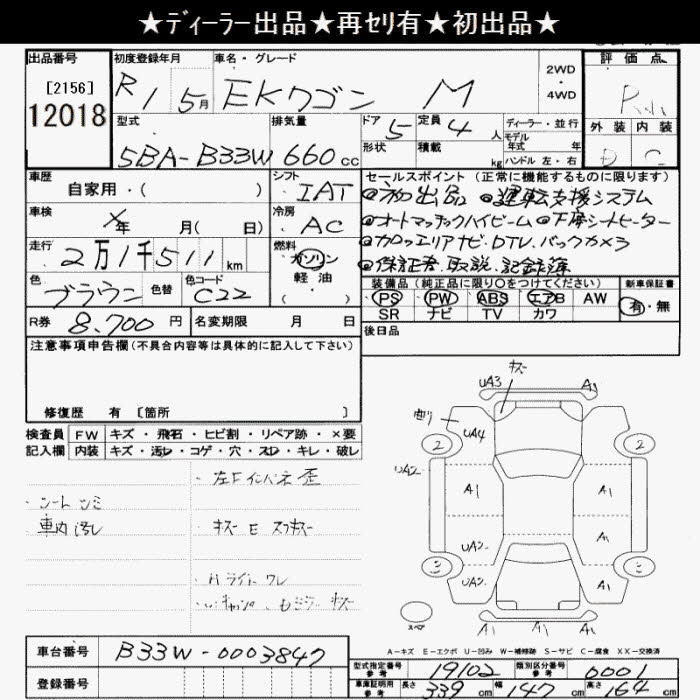 ★ディーラー出品★再セリ有★初出品★
出品番号
[2156]
12018
初度登録年月
R1 5月
車名・グレード
EKワゴン M
2WD
・
4WD
評価点
外装 内装
D C
型式
5BA-B33W
排気量
660cc
ドア 5
形状
定員 4人
積載 kg
ディーラー・並行
モデル年式 年式
ハンドル 左・右
車歴
自家用・( )
シフト
IAT
車検
×年 月( 日)
冷房
AC
走行
2万1千511km
燃料
ガソリン
軽油
( )
色
ブラウン
色替
色コード
C22
R券
8,700円
名変期限 月 日
セールスポイント (正常に機能するものに限ります)
●初出品 ●運転支援システム
●オートマチックハイビーム ●下席シートヒーター
●カロッエリアナビ.DTV.バックカメラ
●保証書.取説.記録簿
装備品 (純正品に限り○をつけてください)
PS PW ABS エアB AW
SR ナビ TV カワ
新車保証書
有・無
後日品
注意事項申告欄(不具合内容等は具体的に記入して下さい)
修復歴 有 [箇所 ]
検査員記入欄
FW キズ・飛石・ヒビ割・リペア跡・×要
内装 キズ・汚レ・コゲ・穴・スレ・キレ・破レ
・左Fインパネ歪
・シートシミ
・車内汚レ
・キズ E スリキズ
・Hライト ワレ
キズ
UA3
A1
UA4
2
2
UA2
A1
A1
UA2
A1
UA2
A1
A1
A1
A1
スペア
A-キズ E-エクボ U-凹み W-補修跡 S-サビ C-腐食 XX-交換済
車台番号
B33W-0003847
登録番号
型式指定番号 参考
19102
類別区分番号 参考
0001
車庫証明用 参考
長さ 339cm
幅 147cm
高さ 164cm